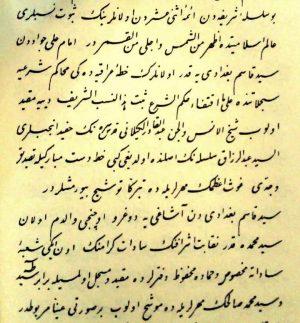 بو سلسلهٔ شریفه‌دن ائمهٔ اثنی عشردن اولانلرینك ثبوت نسبلری
عالم اسلامیتده اظهر من الشمس واجلی من القمردر امام علی جواددن
سید قاسم بغدادی یه قدر اولانلرك خطهٔ عراقیه ده کی محاکم شرعیه
سجلاتنده علی اقتضاء حکم الشرع ثبت بذ النسب الشریف دییه مقید
اولوب شیخ الانس والجن عبدالقادر الکیلانی قدس سره نك حفید انجبلری
السید عبدالرزاق سلسله نك اصلنه اولدیغی کبی خط دست مبارکیله تصدیق
وجدی غوث اعظمك مهریله ده تبرکا توشیح بیورمشلردر
سید قاسم بغدادی دن آشاغی یه دوغرو اوچنجی والدم اولان
سید محمده قدر نقابت اشرافنك سادات کرامنك اون ایکی شعبهٔ
ساداته مخصوص وحماده محفوظ دفترلرده مقید ومسجل اولمسیله برابر سید
وسید محمد صالحك مهریله ده موشح اولوب بر صورتی عیناً مربوطدر